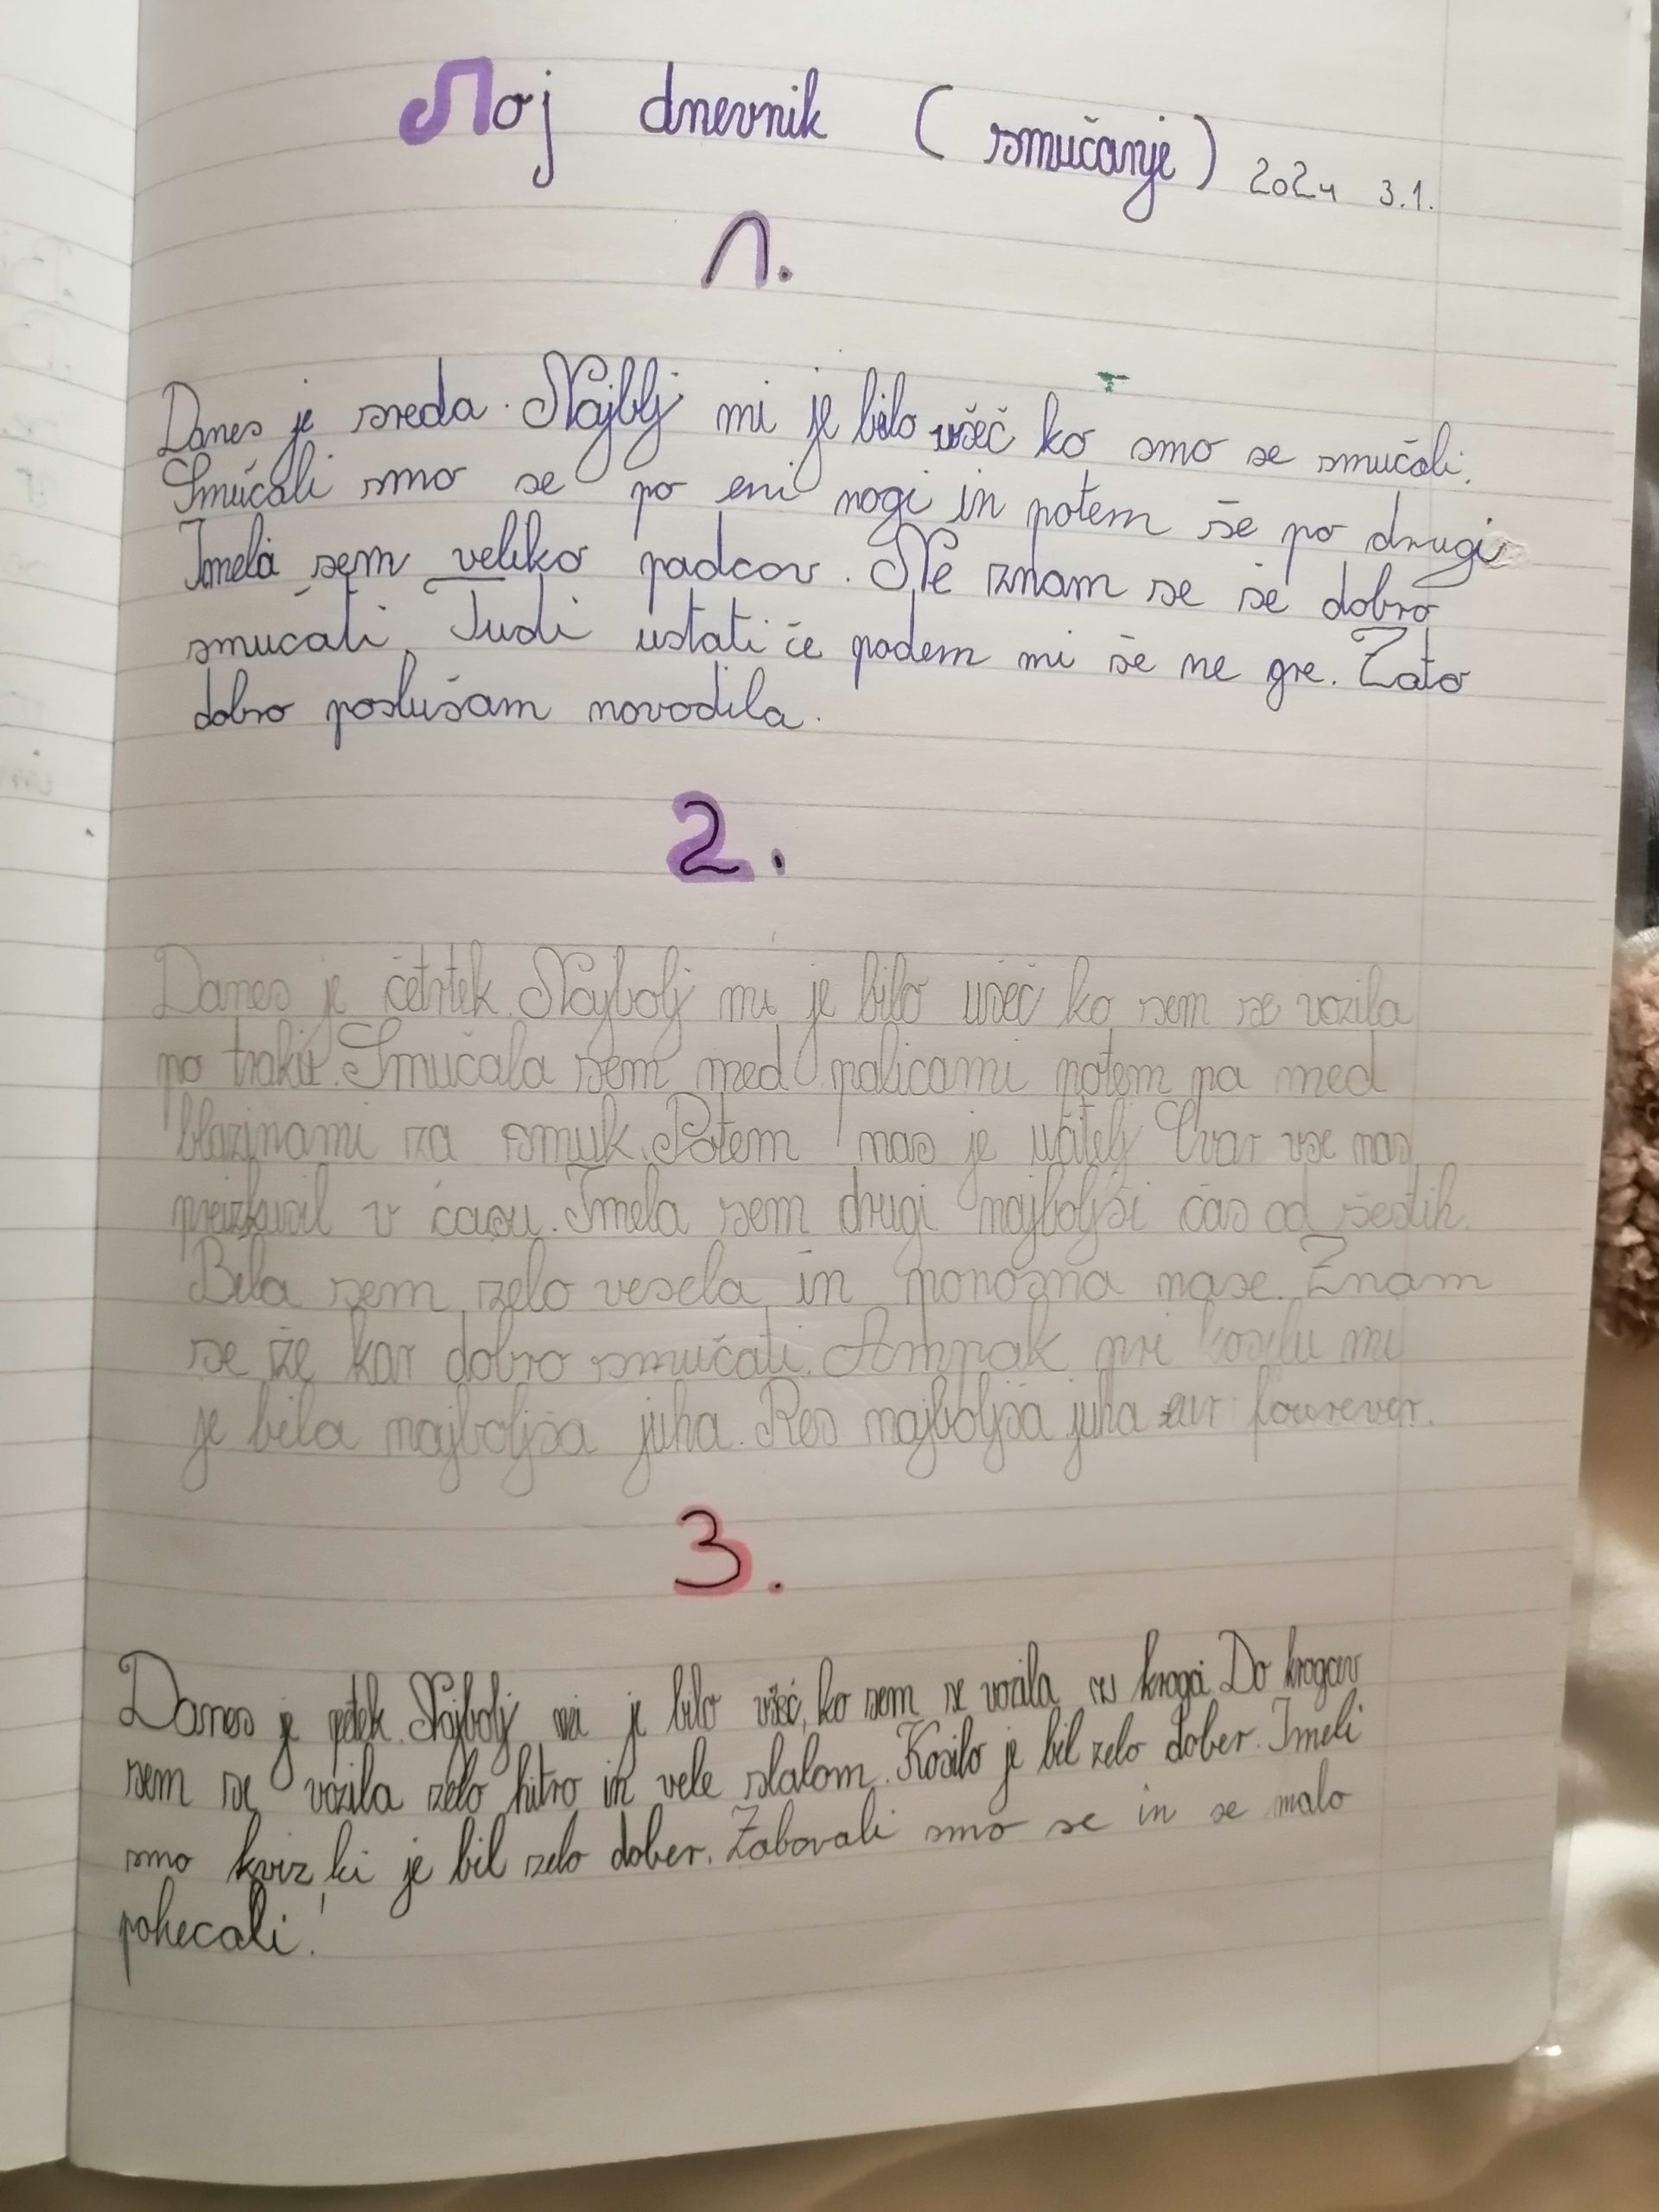 Moj dnevnik (smučanje) 2024 3.1.
1.
Danes je sreda. Najblj mi je bilo všeč ko smo se smučali.
Smučali smo se po eni nogi in potem še po drugi
Imela sem veliko padcov. Ne znam se še dobro
smučati. Tudi ustati če padem mi še ne gre. Zato
dobro poslušam novodila.
2.
Danes je četrtek. Najbolj mi je bilo ušeč ko sem se vozila
po traku. Smučala sem med palicami potem pa med
blazinami za smuk. Potem nas je učitelj vse nas
v času. Imela sem drugi najboljši čas od šestih.
Bila sem zelo vesela in ponosna nase. Znam
se že kar dobro smučati. Ampak pri kosilu mi
je bila najboljša juha. Res najboljša juha fourever.
3.
Danes je petek. Najbolj mi je bilo všeč, ko sem se vozila kroga. Do krogov
sem se vozila zelo hitro in vele slalom. Kosilo je bil zelo dober. Imeli
smo kviz, ki je bil zelo dober. Zabovali smo se in se malo
pohecali!